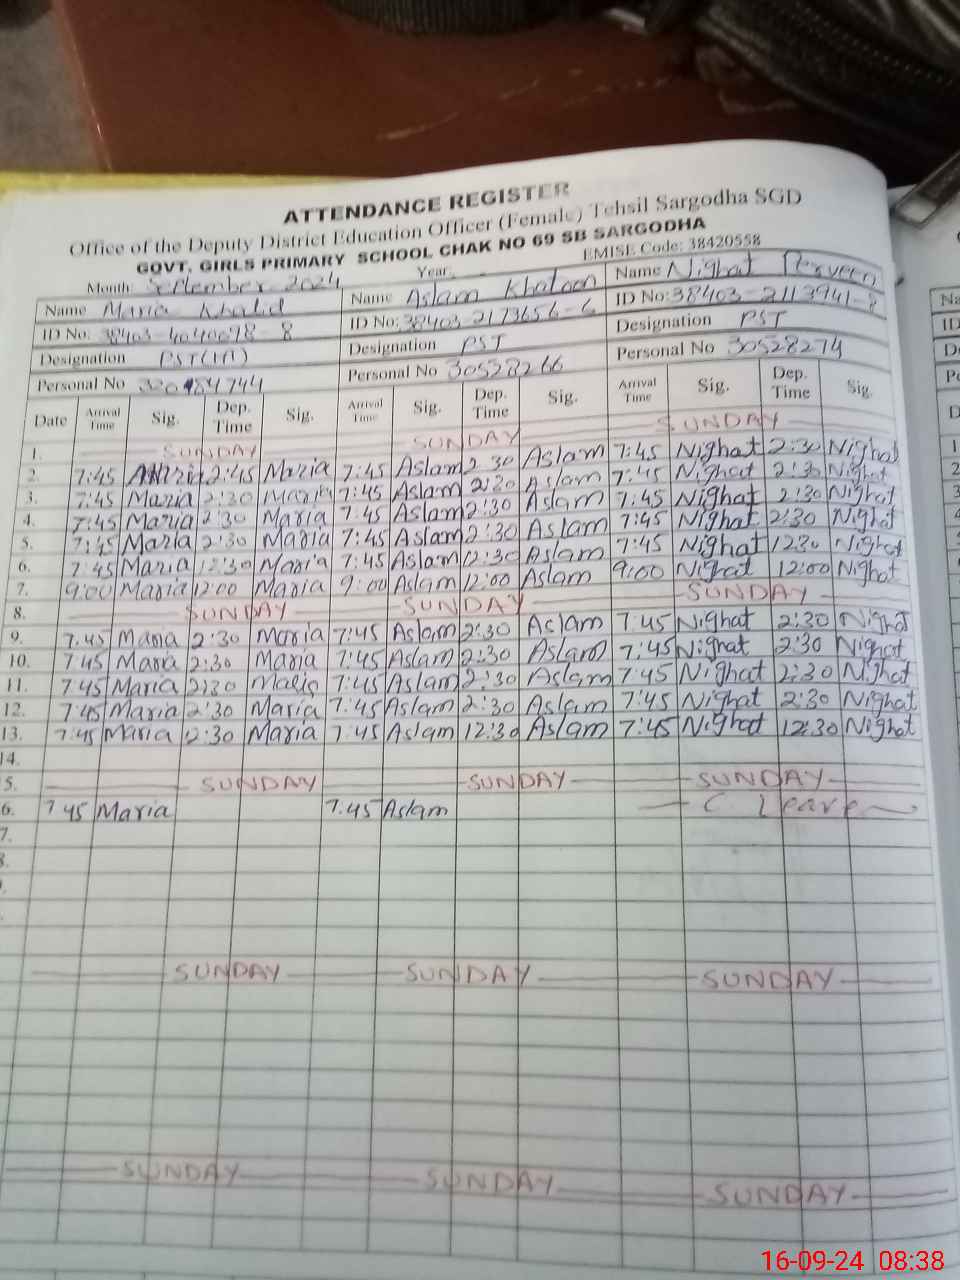 ATTENDANCE REGISTER
Office of the Deputy District Education Officer (Female) Tehsil Sargodha SGD
GOVT. GIRLS PRIMARY SCHOOL CHAK NO 69 SB SARGODHA
Month: September 2024 Year. EMISE Code: 38420558
Name Maria Khalid Name Aslam Khatoon Name Nighat Perveen
ID No: 38403-4040098-8 ID No: 38403-2173656-6 ID No: 38403-2113941-8
Designation PST(M) Designation PST Designation PST
Personal No Personal No 30528266 Personal No 30528274
Date Arrival Time Sig. Dep. Time Sig. Arrival Time Sig. Dep. Time Sig. Arrival Time Sig. Dep. Time Sig.
1. SUNDAY SUNDAY SUNDAY
2. 7:45 Maria 2:45 Maria 7:45 Aslam 2 30 Aslam 7:45 Nighat 2:30 Nighat
3. 7:45 Maria 2:30 Maria 7:45 Aslam 2:30 Aslam 7:45 Nighat 2:30 Nighat
4. 7:45 Maria 2:30 Maria 7:45 Aslam 2:30 Aslam 7:45 Nighat 2:30 Nighat
5. 7:45 Maria 2:30 Maria 7:45 Aslam 2:30 Aslam 7:45 Nighat 2:30 Nighat
6. 7:45 Maria 12:30 Maria 7:45 Aslam 12:30 Aslam 7:45 Nighat 1230 Nighat
7. 9:00 Maria 12:00 Maria 9:00 Aslam 12:00 Aslam 9:00 Nighat 12:00 Nighat
8. SUNDAY SUNDAY SUNDAY
9. 7:45 Maria 2:30 Maria 7:45 Aslam 2:30 Aslam 7:45 Nighat 2:30 Nighat
10. 7:45 Maria 2:30 Maria 7:45 Aslam 2:30 Aslam 7:45 Nighat 2:30 Nighat
11. 7:45 Maria 2:30 Maria 7:45 Aslam 2:30 Aslam 7:45 Nighat 2:30 Nighat
12. 7:45 Maria 2:30 Maria 7:45 Aslam 2:30 Aslam 7:45 Nighat 2:30 Nighat
13. 7:45 Maria 2:30 Maria 7:45 Aslam 12:30 Aslam 7:45 Nighat 12:30 Nighat
14.
5. SUNDAY SUNDAY SUNDAY
6. 7:45 Maria 7:45 Aslam C. Leave
7.
8.
SUNDAY SUNDAY SUNDAY
SUNDAY SUNDAY SUNDAY
16-09-24 08:38